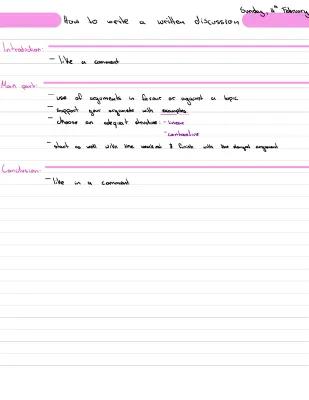 Sunday, 11th February
How to write a written discussion
Introduction:
- like a comment
Main part:
- use of arguments in favour or against a topic
- support your arguments with examples
- choose an adequat structure: - linear
- contrastive
- start as well with the weakest & finish with the strongest argument
Conclusion:
- like in a comment